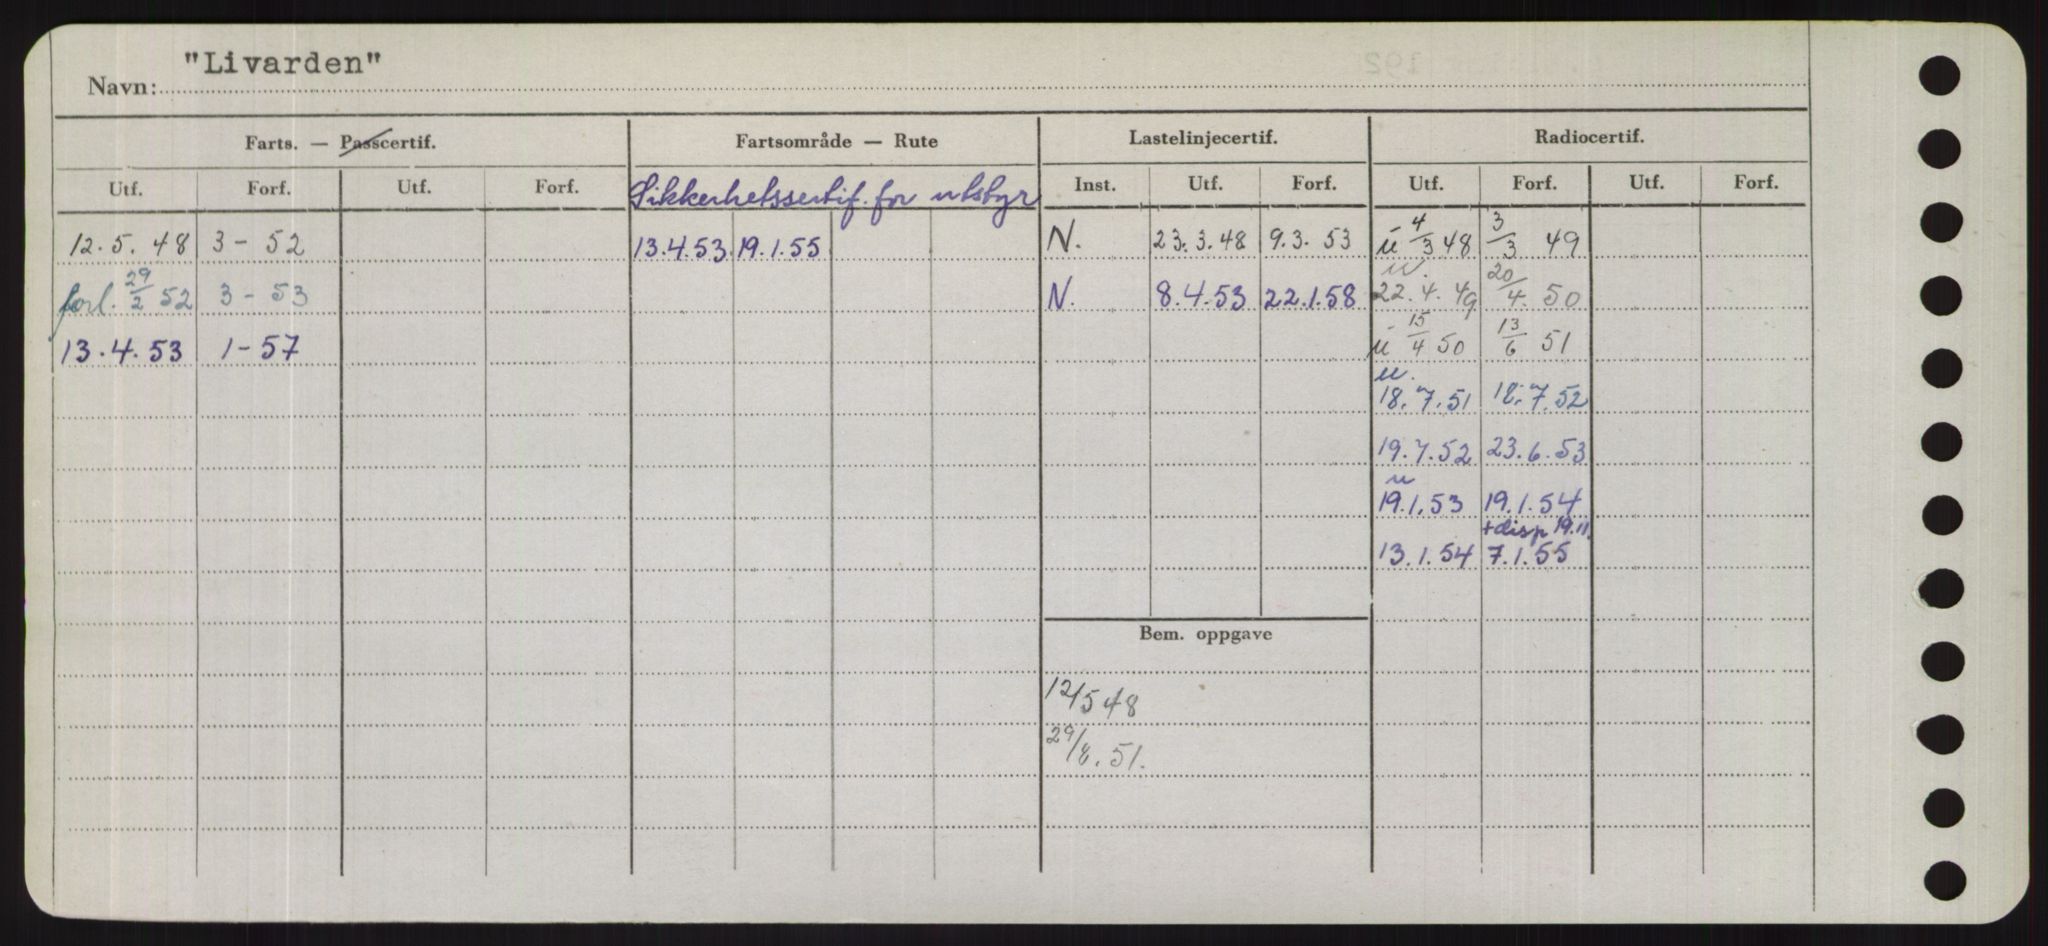 Navn: "Livarden"
Farts. — Passcertif. Fartsområde — Rute Lastelinjecertif. Radiocertif.
Utf. Forf. Utf. Forf. Sikkerhetssertif. for utstyr Inst. Utf. Forf. Utf. Forf. Utf. Forf.
12.5. 48 3 - 52 13.4.53 19.1.55 N. 23.3.48 9.3. 53 u 4/3 48 3/3 49
forl. 29/2 52 3 - 53 N. 8.4.53 22.1.58 u. 22.4.49 20/4. 50
13.4.53 1 - 57 u 15/4 50 13/6 51
u. 18.7.51 18.7.52
19.7.52 23.6.53
u 19.1.53 19.1.54
+disp 19.11.
13.1.54 7.1.55
Bem. oppgave
12/5 48
29/8. 51.